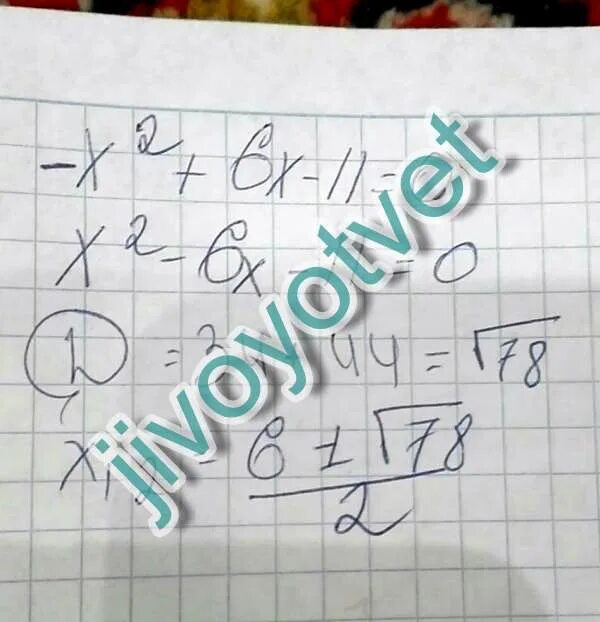 -x² + 6x - 11 =
x² - 6x = 0
= 44 = √78
6 ± √78
2
jivoyotvet